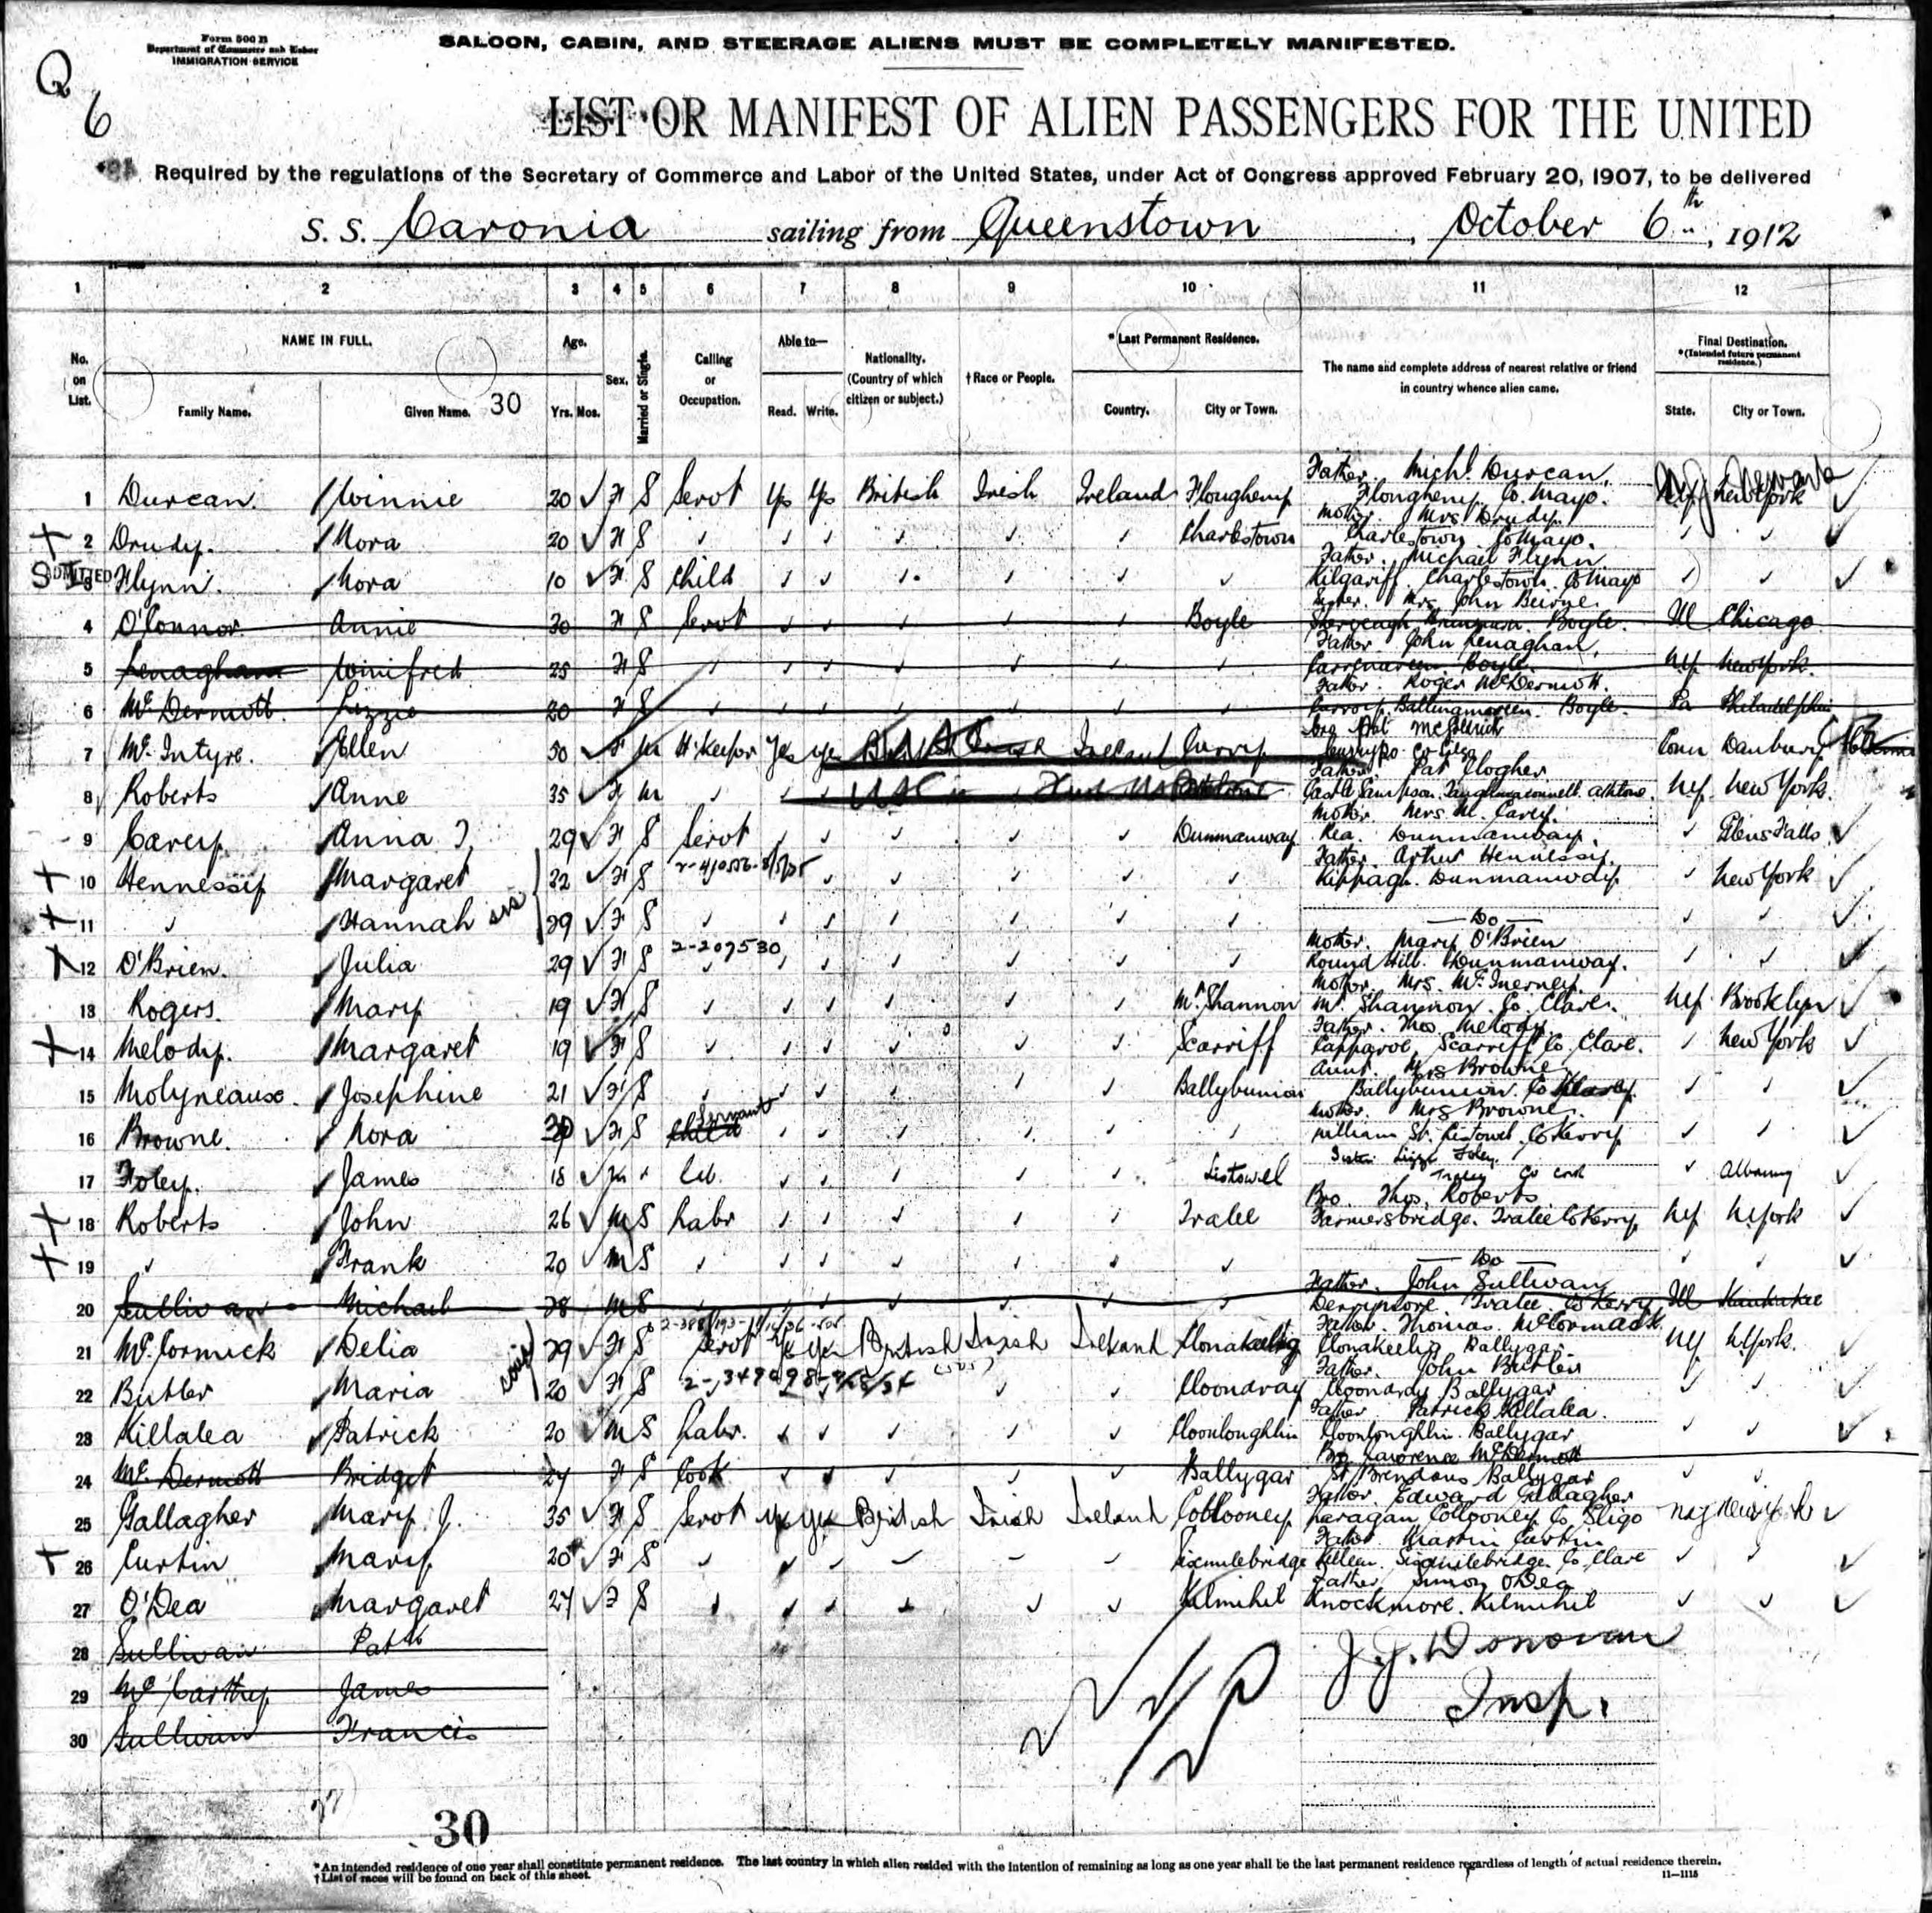 Form 500 B
Department of Commerce and Labor
IMMIGRATION SERVICE
SALOON, CABIN, AND STEERAGE ALIENS MUST BE COMPLETELY MANIFESTED.
Q
6
LIST OR MANIFEST OF ALIEN PASSENGERS FOR THE UNITED
Required by the regulations of the Secretary of Commerce and Labor of the United States, under Act of Congress approved February 20, 1907, to be delivered
S. S. Caronia sailing from Queenstown, October 6th, 1912
1 2 3 4 5 6 7 8 9 10 11 12
No. on List.
NAME IN FULL.
Family Name. Given Name. 30
Age.
Yrs. Mos.
Sex.
Married or Single.
Calling or Occupation.
Able to—
Read. Write.
Nationality. (Country of which citizen or subject.)
†Race or People.
*Last Permanent Residence.
Country. City or Town.
The name and complete address of nearest relative or friend in country whence alien came.
Final Destination.
*(Intended future permanent residence.)
State. City or Town.
Father. Michl. Durcan,
1 Durcan. Winnie 20 ✓ F S Servt Yes Yes British Irish Ireland Co. Mayo. NJ Newark New York ✓
Mother. Mrs Drudy.
2 Drudy. Nora 20 ✓ F S ✓ ✓ ✓ ✓ ✓ ✓ Charlestown Charlestown Co Mayo. ✓ ✓ ✓
Father. Michael Flynn.
S I ADMITTED 3 Flynn. Nora 10 ✓ F S Child ✓ ✓ ✓ ✓ ✓ ✓ Kilgariff. Charlestown. Co Mayo ✓ ✓ ✓
Sister. Mrs John Beirne.
4 O'Connor. Annie 30 F S Servt ✓ ✓ ✓ ✓ ✓ Boyle Boyle. Ill Chicago
Father. John Lenaghan,
5 Lenaghan Winifred 25 F S ✓ ✓ ✓ ✓ ✓ ✓ ✓ Boyle. NY New York.
Father. Roger McDermott.
6 McDermott. Lizzie 20 F S ✓ ✓ ✓ ✓ ✓ ✓ ✓ Boyle. Pa Philadelphia
7 McIntyre. Ellen 50 ✓ F M H'Keeper Yes Yes Irish Ireland Curry Co Sligo Conn Danbury
Father. Pat Clogher
8 Roberts Anne 35 ✓ F M ✓ ✓ Athlone Castle Sampson. Athlone. NY. New York.
Mother. Mrs M. Carey.
9 Carey. Anna T, 29 ✓ F S Servt ✓ ✓ ✓ ✓ ✓ Dunmanway Kea. Dunmanway. ✓ Glens Falls ✓
Father. Arthur Hennessy.
10 Hennessy Margaret 22 ✓ F S ✓ ✓ ✓ ✓ ✓ Kippagh. Dunmanway ✓ New York ✓
11 ✓ Hannah sis 29 ✓ F S ✓ ✓ ✓ ✓ ✓ ✓ ✓ — Do — ✓ ✓ ✓
Mother. Mary O'Brien
2-207530
12 O'Brien. Julia 29 ✓ F S ✓ ✓ ✓ ✓ ✓ ✓ ✓ Round Hill. Dunmanway. ✓ ✓ ✓
Mother. Mrs. McInerney.
13 Rogers. Mary 19 ✓ F S ✓ ✓ ✓ ✓ ✓ ✓ Mt Shannon Mt Shannon. Co. Clare. NY Brooklyn ✓
Father. Thos. Melody.
14 Melody. Margaret 19 ✓ F S ✓ ✓ ✓ ✓ ✓ ✓ Scarriff Capparoe, Scarriff Co. Clare. ✓ New York ✓
Aunt. Mrs Browne,
15 Molyneause. Josephine 21 ✓ F S ✓ ✓ ✓ ✓ ✓ ✓ Ballybunion Ballybunion. Co ✓ ✓ ✓
Mother. Mrs Browne.
Servant
16 Browne. Nora ✓ F S Child ✓ ✓ ✓ ✓ ✓ ✓ William St. Listowel. Co Kerry ✓ ✓ ✓
Sister Lizzie Foley.
17 Foley. James 18 ✓ M ✓ ✓ ✓ ✓ ✓ ✓ Listowel Co Cork ✓ Albany ✓
Bro. Thos. Roberts
18 Roberts John 26 ✓ M S Labr ✓ ✓ ✓ ✓ ✓ Tralee Farmersbridge. Tralee Co Kerry NY N York ✓
19 ✓ Frank 20 ✓ M S ✓ ✓ ✓ ✓ ✓ ✓ ✓ — Do — ✓ ✓ ✓
Father. John Sullivan
20 Sullivan Michael 28 M S ✓ ✓ ✓ ✓ ✓ ✓ ✓ Derrymore. Tralee. Co Kerry Ill Kankakee
Father. Thomas. McCormack
21 McCormick Delia 29 ✓ F S Servt Yes Yes British Irish Ireland Clonakeelig Clonakeelig Ballygar. NY N York. ✓
Father. John Butler
22 Butler Maria cousin 20 ✓ F S ✓ ✓ Cloondray Cloondray Ballygar ✓ ✓ ✓
Father Patrick Killalea.
23 Killalea Patrick 20 ✓ M S Labr. ✓ ✓ ✓ ✓ ✓ Cloonloughlin Cloonloughlin. Ballygar ✓ ✓ ✓
Bro Lawrence McDermott
24 McDermott Bridget 24 F S Cook ✓ ✓ ✓ ✓ ✓ Ballygar St Brendans Ballygar ✓ ✓
Father. Edward Gallagher
25 Gallagher Mary J. 35 ✓ F S Servt Yes Yes British Irish Ireland Collooney Collooney Co Sligo NY New York ✓
Father Martin Curtin
26 Curtin Mary 20 ✓ F S ✓ ✓ ✓ ✓ ✓ ✓ Sixmilebridge Sixmilebridge. Co. Clare ✓ ✓ ✓
Father Simon O'Dea
27 O'Dea Margaret 24 ✓ F S ✓ ✓ ✓ ✓ ✓ ✓ Kilmihil Knockmore. Kilmihil ✓ ✓ ✓
28 Sullivan Patk
29 McCarthy James
30 Sullivan Francis
J. J. Donovan
Insp.
30
*An intended residence of one year shall constitute permanent residence. The last country in which alien resided with the intention of remaining as long as one year shall be the last permanent residence regardless of length of actual residence therein.
†List of races will be found on back of this sheet.
11—1115